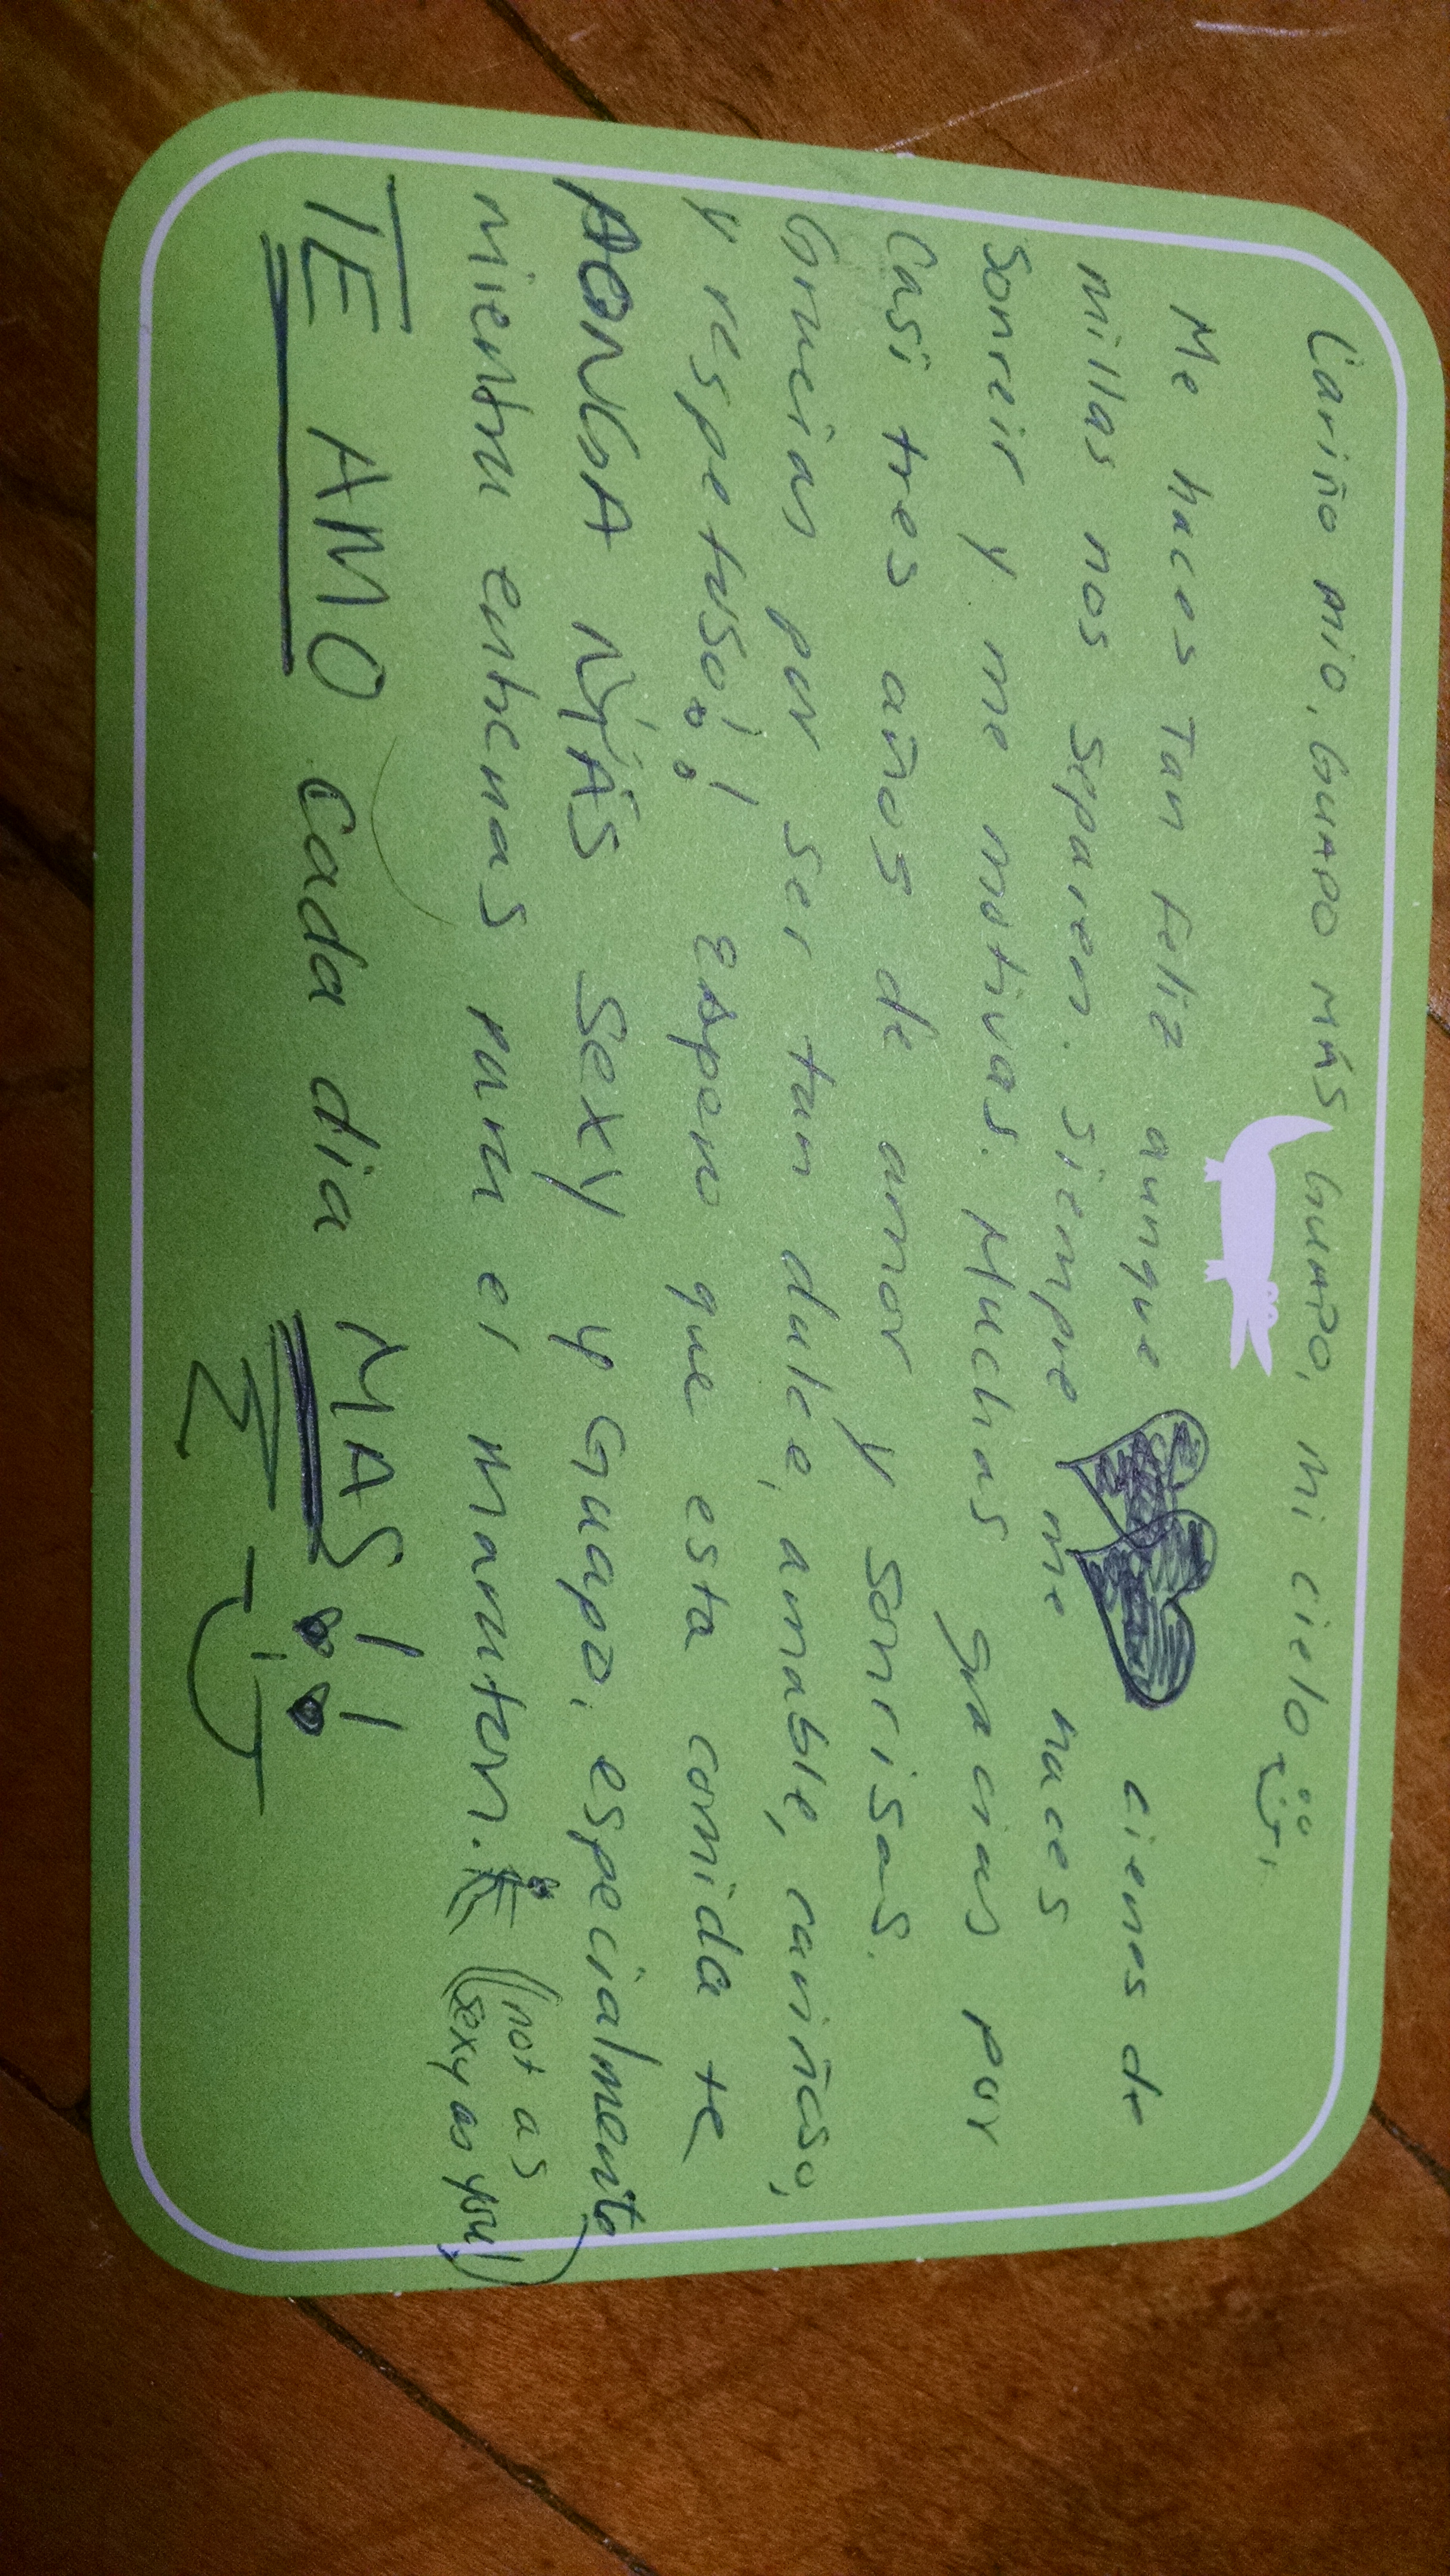 Cariño mio, GUAPO MÁS GUAPO, mi cielo
Me haces Tan feliz aunque cienes de
millas nos separen. siempre me haces
Sonreir y me motivas. Muchas gracias por
Casi tres años de amor y sonrisas.
Gracias por ser tan dulce, amable, cariñoso,
y respetuso!! espero que esta comida te
PONGA MÁS Sexy y Guapo, especialmente
mientra entrenas para el maraton. (not as
sexy as you!)
TE AMO cada dia MAS!!